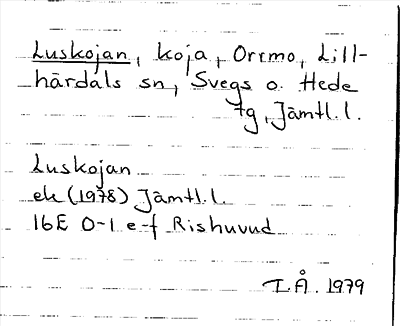 Luskojan, koja, Orrmo, Lill-
härdals sn, Svegs o. Hede
tg, Jämtl. l.
Luskojan
ek (1978) Jämtl. l.
16E 0-1 e-f Rishuvud
T.Å. 1979